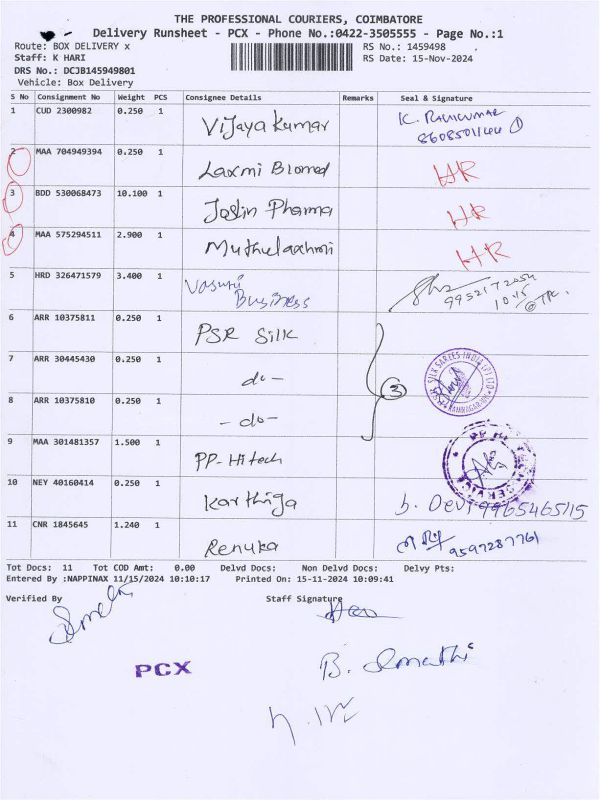 THE PROFESSIONAL COURIERS, COIMBATORE
Delivery Runsheet - PCX - Phone No.:0422-3505555 - Page No.:1
Route: BOX DELIVERY x
RS No.: 1459498
Staff: K HARI
RS Date: 15-Nov-2024
DRS No.: DCJB145949801
Vehicle: Box Delivery
S No Consignment No Weight PCS Consignee Details Remarks Seal & Signature
1 CUD 2300982 0.250 1 Vijaya Kumar K. RAVIKUMAR
8608501144 1
2 MAA 704949394 0.250 1 Laxmi Biomed HR
3 BDD 530068473 10.100 1 Joslin Pharma HR
4 MAA 575294511 2.900 1 Muthulaxhmi HR
5 HRD 326471579 3.400 1 Vasuni
Business 9952172054
10.15
6 ARR 10375811 0.250 1 PSR Silk
7 ARR 30445430 0.250 1 do - 3 PSR SILK SAREES INDIA (P) LTD
RAMNAGAR
8 ARR 10375810 0.250 1 - do -
9 MAA 301481357 1.500 1 PP-Hitech
10 NEY 40160414 0.250 1 Karthiga b. Devi 9965465115
11 CNR 1845645 1.240 1 Renuka 9597287761
Tot Docs: 11 Tot COD Amt: 0.00 Delvd Docs: Non Delvd Docs: Delvy Pts:
Entered By :NAPPINAX 11/15/2024 10:10:17 Printed On: 15-11-2024 10:09:41
Verified By Staff Signature
PCX
B.